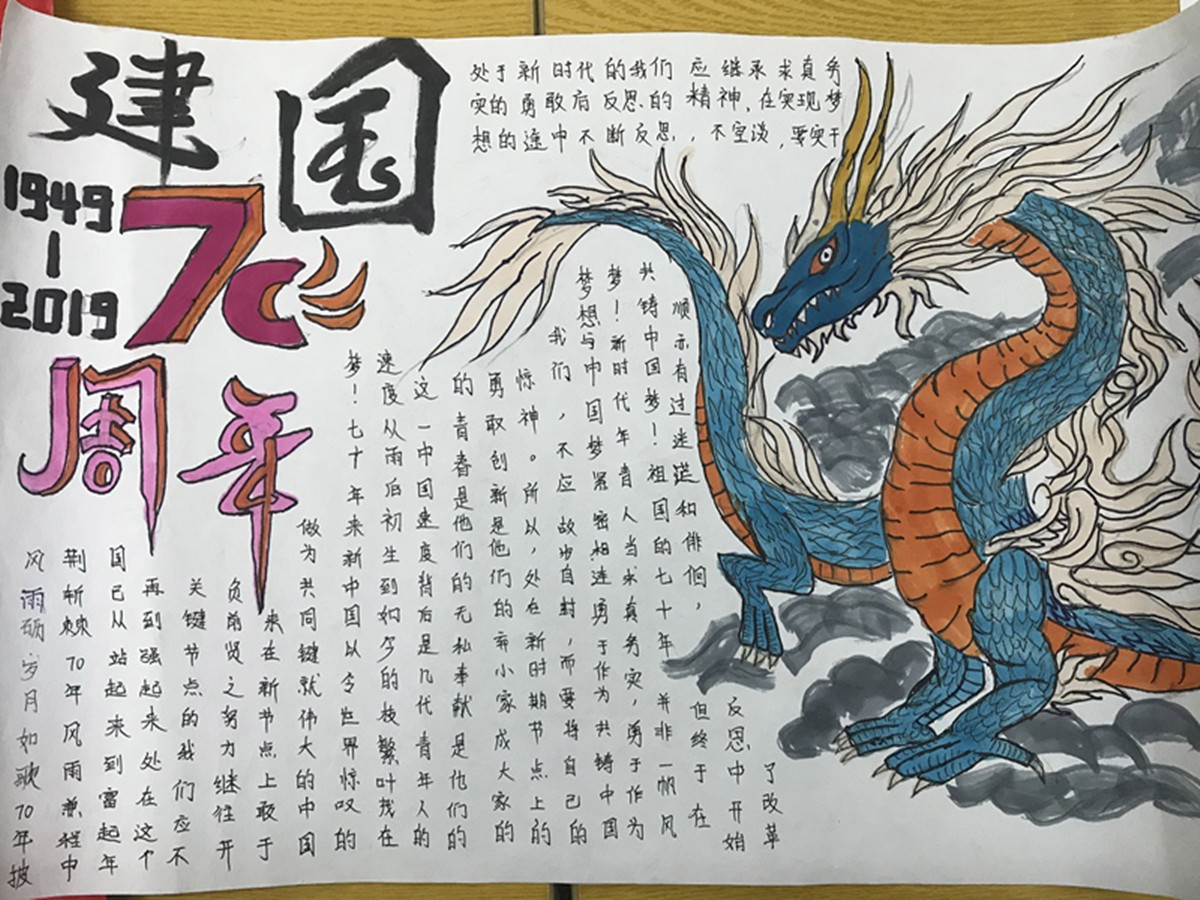 建国
1949
-
2019
70
周年
风雨砺岁月如歌70年披
荆斩棘70年风雨兼程中
国已从站起来到富起年
再到强起来处在这个
关键节点的我们应不
负前贤之努力继往开
来在新节点上敢于
做为共同键就伟大的中国
梦！七十年来新中国以令世界惊叹的
速度从雨后初生到如今的枝繁叶茂在
这一中国速度背后是几代青年人的
的青春是他们的无私奉献是他们的
勇敢创新是他们的弃小家成大家的
惊神。所以,处在新时期节点上的
我们,不应故步自封,而要将自己的
梦想与中国梦紧密相连勇于作为共铸中国
梦！新时代年青人当求真务实,勇于作为
共铸中国梦！祖国的七十年并非一帆风
顺亦有过迷茫和徘徊,但终于在
反思中开始
了改革
处于新时代的我们应继承求真务
实的勇敢后反思的精神,在实现梦
想的途中不断反思,不空谈,要实干